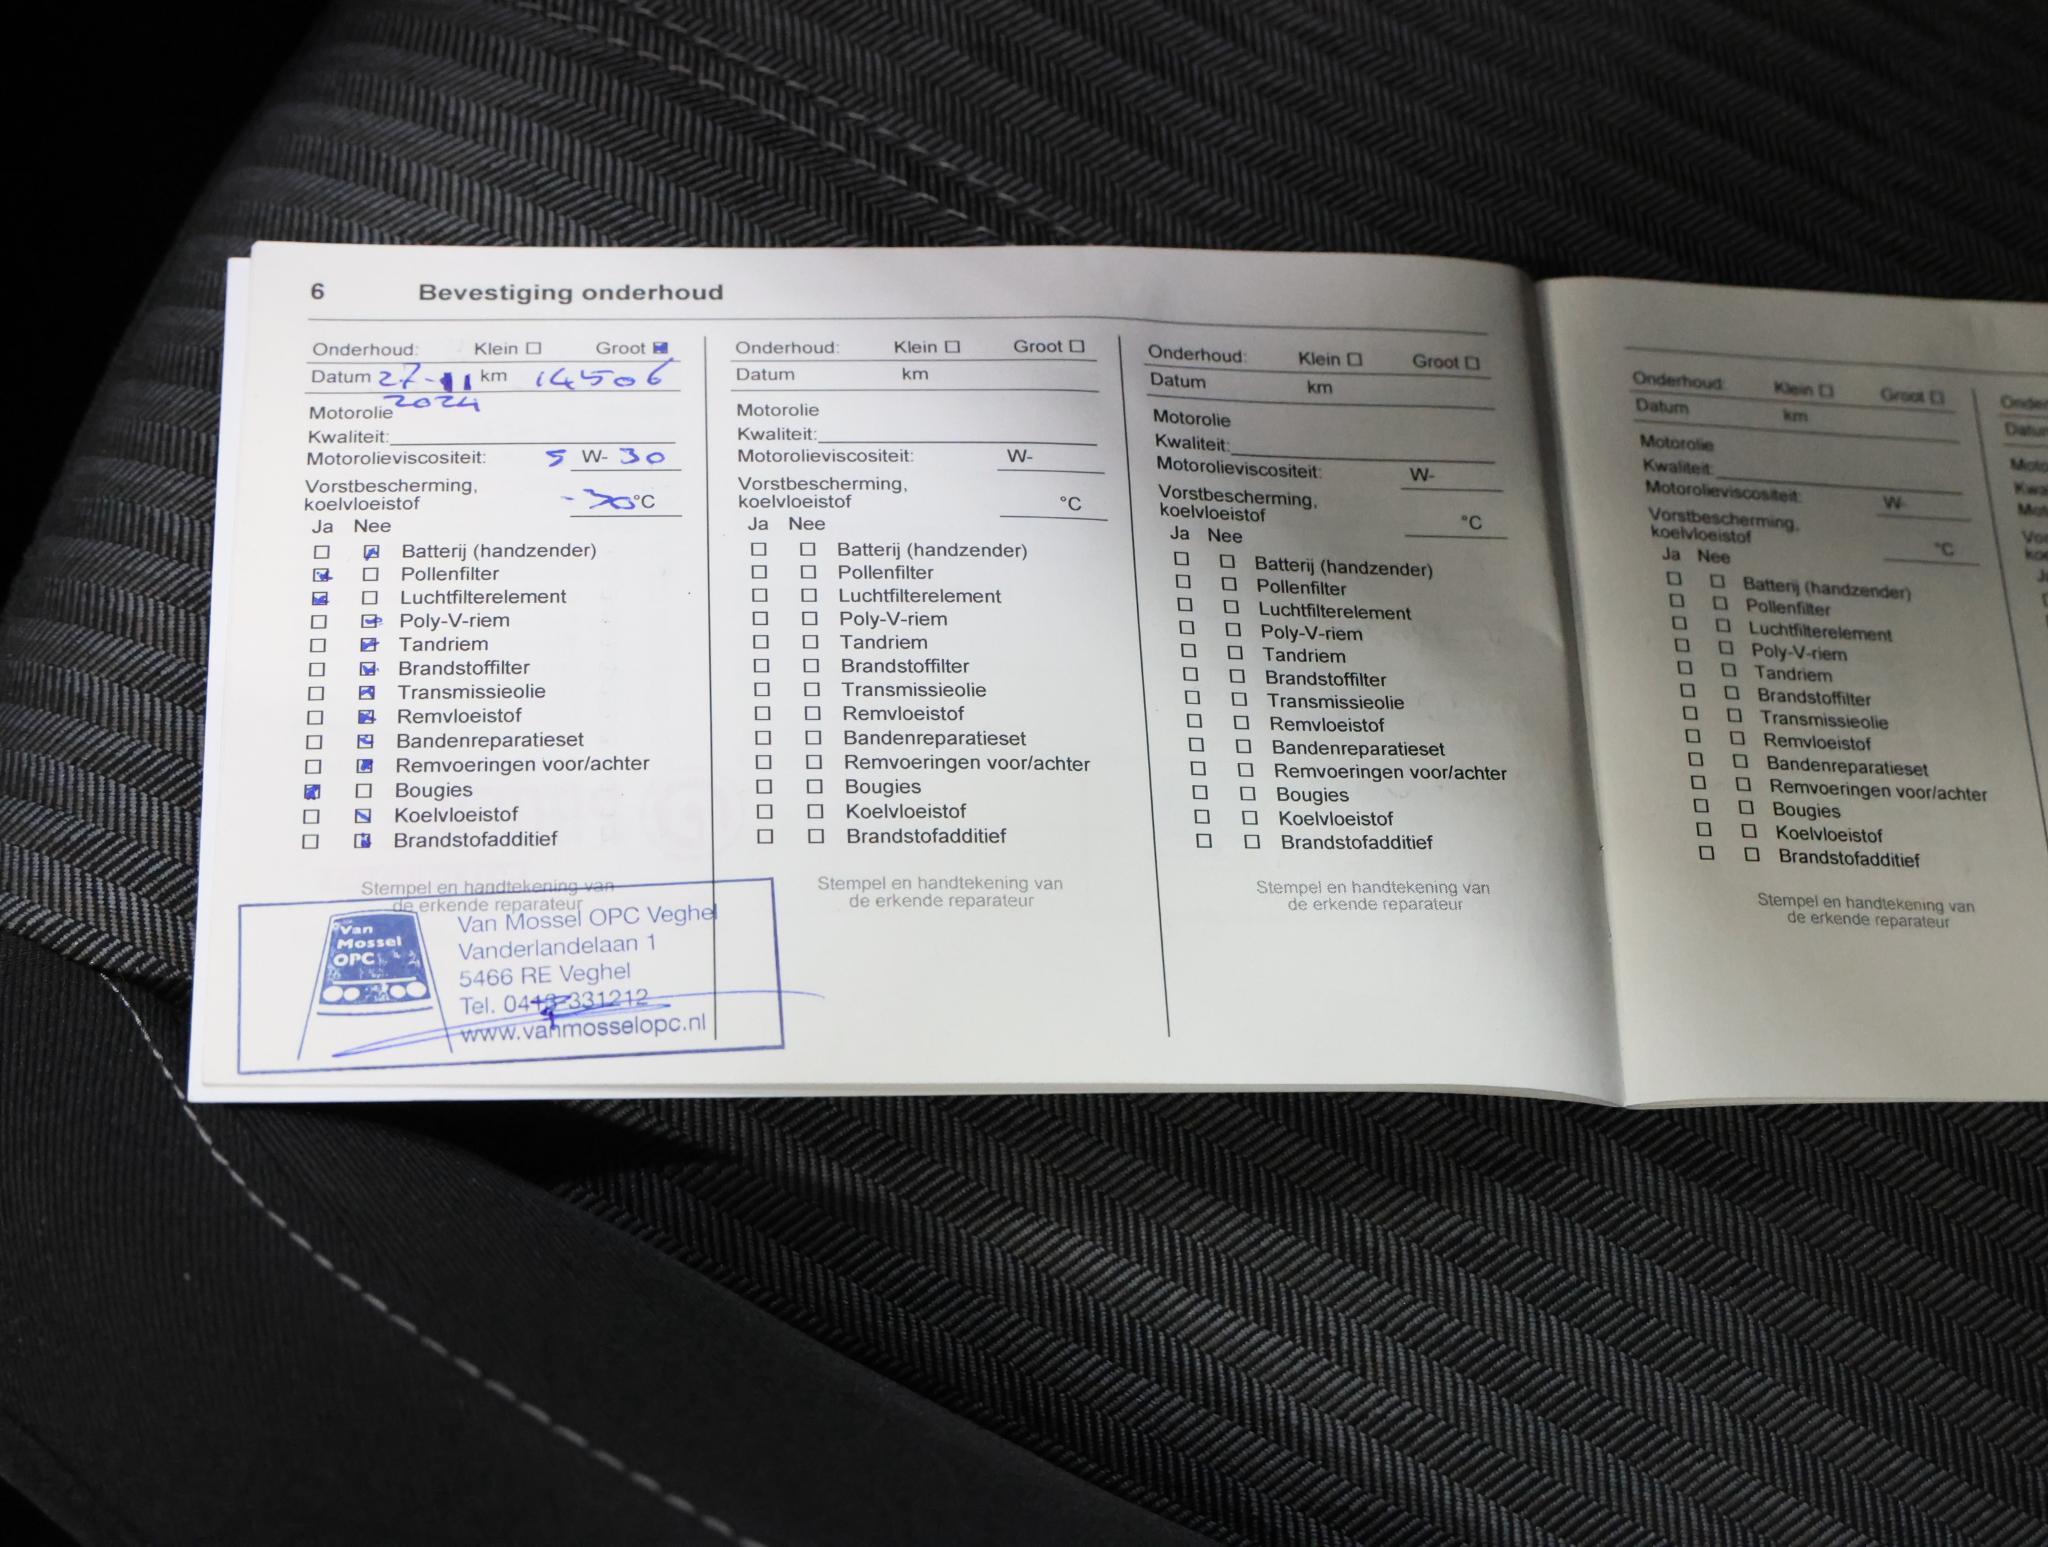 6 Bevestiging onderhoud
Onderhoud: Klein ☐ Groot ☒
Datum 27-11 km 14506
2024
Motorolie
Kwaliteit:
Motorolieviscositeit: 5 W- 30
Vorstbescherming,
koelvloeistof -30°C
Ja Nee
☐ ☒ Batterij (handzender)
☒ ☐ Pollenfilter
☒ ☐ Luchtfilterelement
☐ ☒ Poly-V-riem
☐ ☒ Tandriem
☐ ☒ Brandstoffilter
☐ ☒ Transmissieolie
☐ ☒ Remvloeistof
☐ ☒ Bandenreparatieset
☐ ☒ Remvoeringen voor/achter
☒ ☐ Bougies
☐ ☒ Koelvloeistof
☐ ☒ Brandstofadditief
Stempel en handtekening van
de erkende reparateur
Van
Mossel
OPC
Van Mossel OPC Veghel
Vanderlandelaan 1
5466 RE Veghel
Tel. 0413-331212
www.vanmosselopc.nl
Onderhoud: Klein ☐ Groot ☐
Datum km
Motorolie
Kwaliteit:
Motorolieviscositeit: W-
Vorstbescherming,
koelvloeistof °C
Ja Nee
☐ ☐ Batterij (handzender)
☐ ☐ Pollenfilter
☐ ☐ Luchtfilterelement
☐ ☐ Poly-V-riem
☐ ☐ Tandriem
☐ ☐ Brandstoffilter
☐ ☐ Transmissieolie
☐ ☐ Remvloeistof
☐ ☐ Bandenreparatieset
☐ ☐ Remvoeringen voor/achter
☐ ☐ Bougies
☐ ☐ Koelvloeistof
☐ ☐ Brandstofadditief
Stempel en handtekening van
de erkende reparateur
Onderhoud: Klein ☐ Groot ☐
Datum km
Motorolie
Kwaliteit:
Motorolieviscositeit: W-
Vorstbescherming,
koelvloeistof °C
Ja Nee
☐ ☐ Batterij (handzender)
☐ ☐ Pollenfilter
☐ ☐ Luchtfilterelement
☐ ☐ Poly-V-riem
☐ ☐ Tandriem
☐ ☐ Brandstoffilter
☐ ☐ Transmissieolie
☐ ☐ Remvloeistof
☐ ☐ Bandenreparatieset
☐ ☐ Remvoeringen voor/achter
☐ ☐ Bougies
☐ ☐ Koelvloeistof
☐ ☐ Brandstofadditief
Stempel en handtekening van
de erkende reparateur
Onderhoud: Klein ☐ Groot ☐
Datum km
Motorolie
Kwaliteit:
Motorolieviscositeit: W-
Vorstbescherming,
koelvloeistof °C
Ja Nee
☐ ☐ Batterij (handzender)
☐ ☐ Pollenfilter
☐ ☐ Luchtfilterelement
☐ ☐ Poly-V-riem
☐ ☐ Tandriem
☐ ☐ Brandstoffilter
☐ ☐ Transmissieolie
☐ ☐ Remvloeistof
☐ ☐ Bandenreparatieset
☐ ☐ Remvoeringen voor/achter
☐ ☐ Bougies
☐ ☐ Koelvloeistof
☐ ☐ Brandstofadditief
Stempel en handtekening van
de erkende reparateur